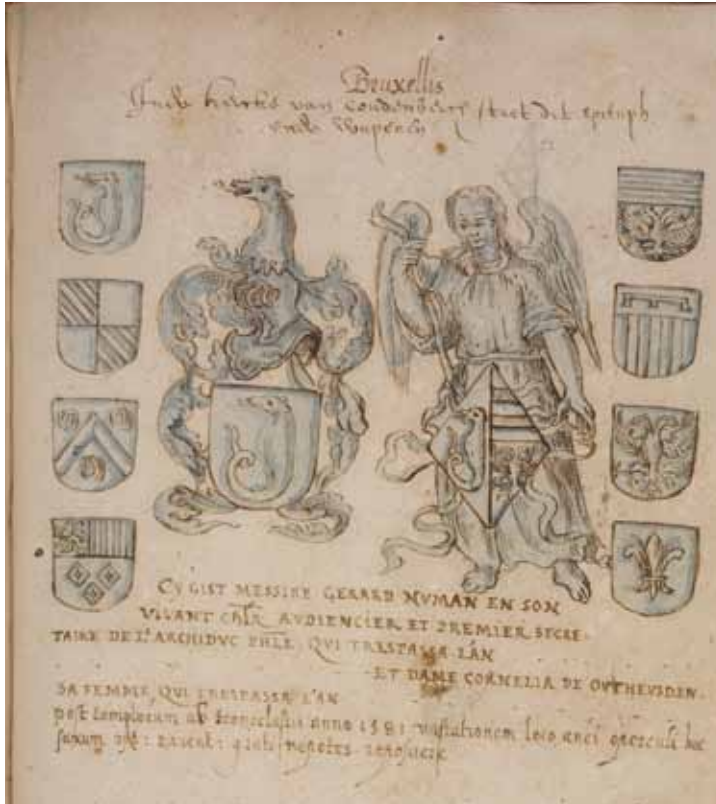 Bruxellis
Inde kercke van Coudenberch staet dit epitaph
ende wapenen
CY GIST MESSIRE GERARD NVMAN EN SON
VIVANT CHLR AVDIENCIER ET PREMIER SECRE-
TAIRE DE L'ARCHIDVC PHLE, QVI TRESPASSA L'AN
ET DAME CORNELIA DE OVTHEVSDEN.
SA FEMME, QVI TRESPASSA L'AN
post templorum ab iconoclastis anno 1581 vastationem loco anci opesculi hoc
saxum grati nepotes